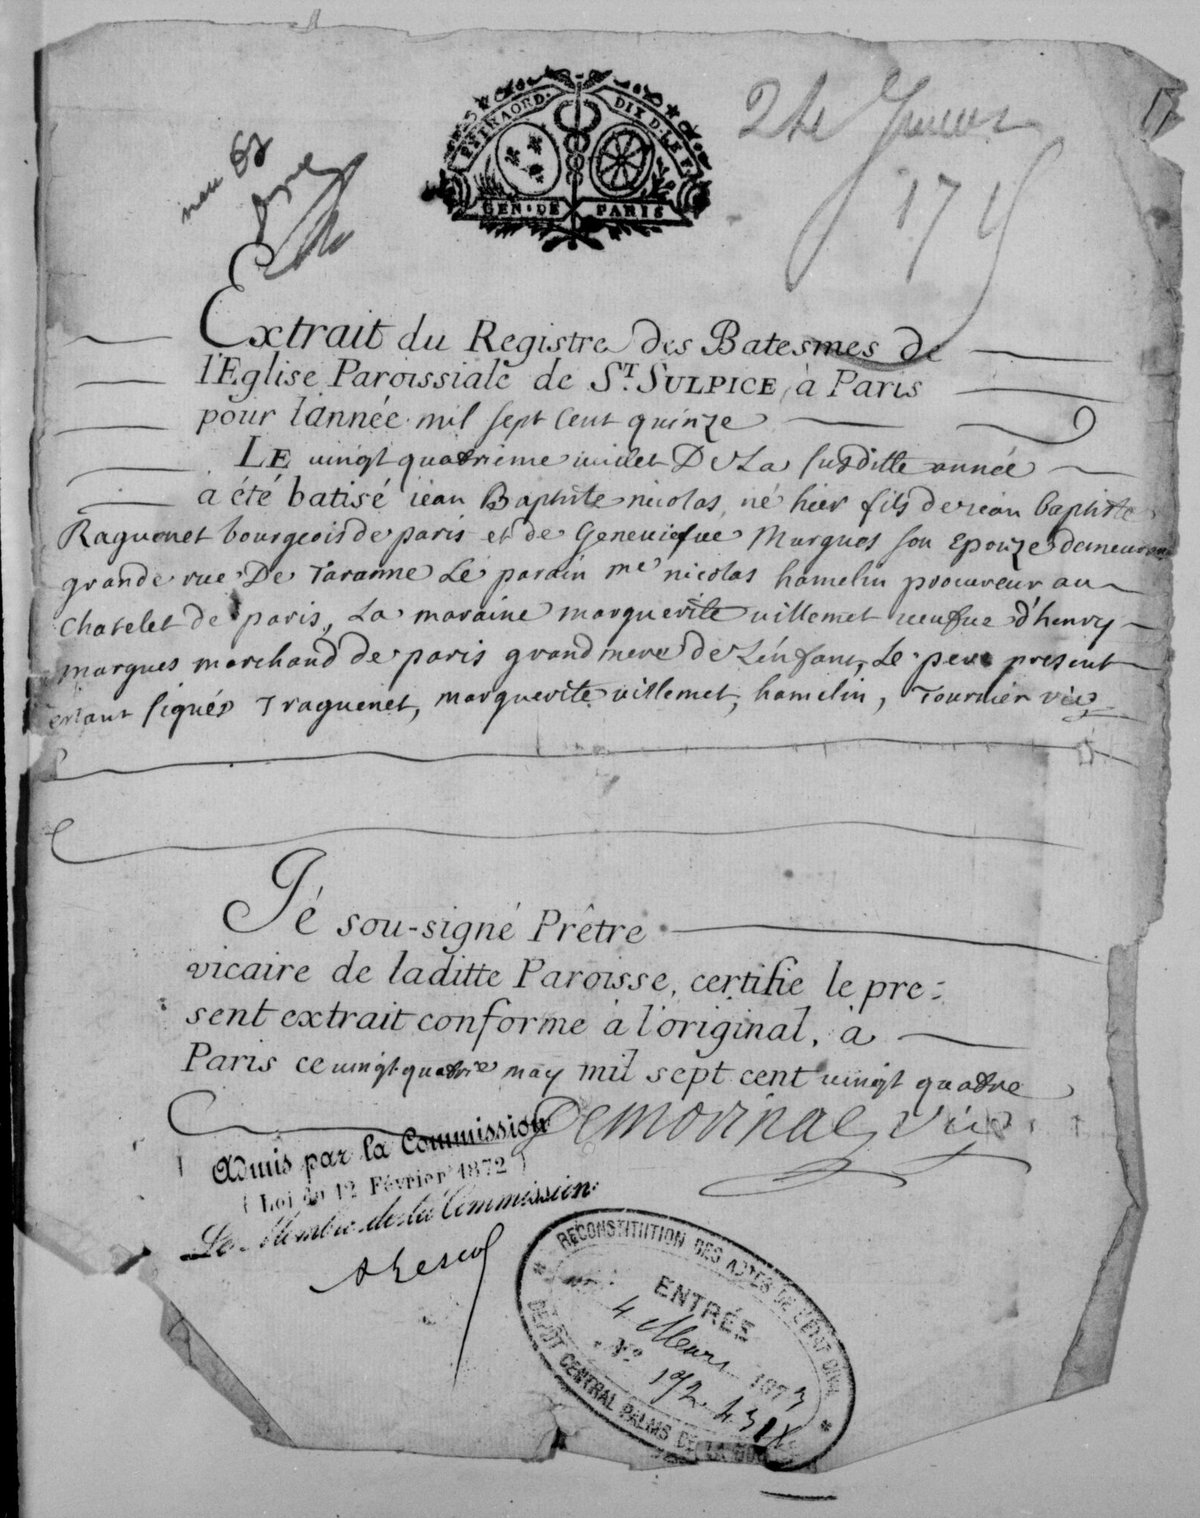 EXTRAORD. DIX D. LE F.
GEN. DE PARIS
24
171
17
Extrait du Registre des Batesmes de
l'Eglise Paroissiale de ST. SULPICE, à Paris
pour l'année mil sept Cent quinze
LE vingt quatrieme iuillet De La susditte année
a été batisé iean Baptiste nicolas, né hier fils de iean baptiste
Raguenet bourgeois de paris et de Geneuiefue Marques son Epouze demeurans
grande rue De Taranne Le parain me nicolas hamelin procureur au
Chatelet de paris, La maraine marguerite uillemet ueufue d'henry
marques marchand de paris grand mere de L'enfant, Le pere present
estant signés J raguenet, marguerite uillemet, hamelin, Tournier vic
Jé sou-signé Prêtre
vicaire de laditte Paroisse, certifie le pre=
sent extrait conforme à l'original, à
Paris ce uingt quatrie may mil sept cent uingt quatre
Admis par la Commission
(Loi du 12 Février 1872)
Le Membre de la Commission
RECONSTITUTION DES ACTES DE L'ETAT CIVIL
ENTRÉS
4 Mars 1873
No 192
DEPOT CENTRAL PALAIS DE LA BOURSE